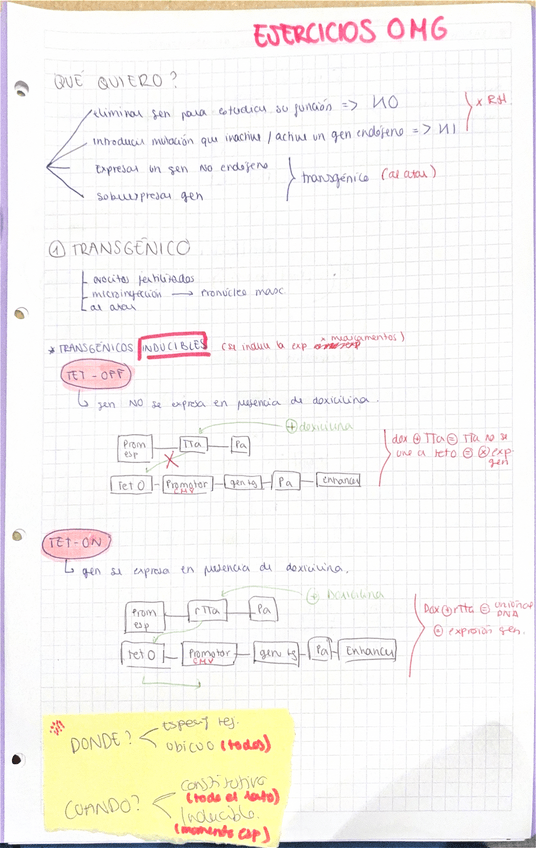 EJERCICIOS OMG
QUÉ QUIERO?
eliminar gen para estudiar su función => KO
introducir mutación que inactive / active un gen endógeno => KI
x RH.
expresar un gen NO endógeno
sobreexpresar gen
transgénico (al azar)
① TRANSGÉNICO
ovocitos fertilizados
microinyección → pronúcleo masc.
al azar
* TRANSGÉNICOS INDUCIBLES (se induce la exp x medicamentos)
TET-OFF
↳ gen NO se expresa en presencia de doxiciclina.
⊕ doxiciclina
Prom esp
TTa
Pa
Tet O - Promotor CMV - gen tg - Pa - Enhancer
dox ⊕ TTa ⊜ TTa no se
une a tetO ⊜ ⊗ exp
gen
TET-ON
↳ gen se expresa en presencia de doxiciclina.
⊕ Doxiciclina
Prom esp
rTTa
Pa
Tet O - Promotor CMV - gen tg - Pa - Enhancer
Dox ⊕ rTTa ⊜ unión al
DNA
⊜ expresión gen.
DONDE?
especif tej.
ubicuo (todos)
CUANDO?
constitutivo
(todo el rato)
Inducible.
(momento esp)